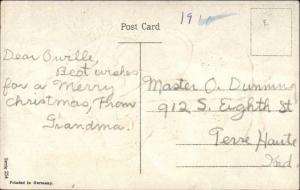 191
Post Card
Dear Orville,
Best wishes
for a Merry
Christmas, From
Grandma.
Master O. Dunning
912 S. Eighth St
Terre Haute
Ind.
Series 254
Printed in Germany.